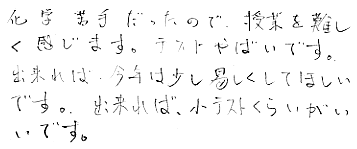 化学苦手だったので、授業を難し
く感じます。テストやばいです。
出来れば、今年は少し易しくしてほしい
です。出来れば、小テストくらいがい
いです。